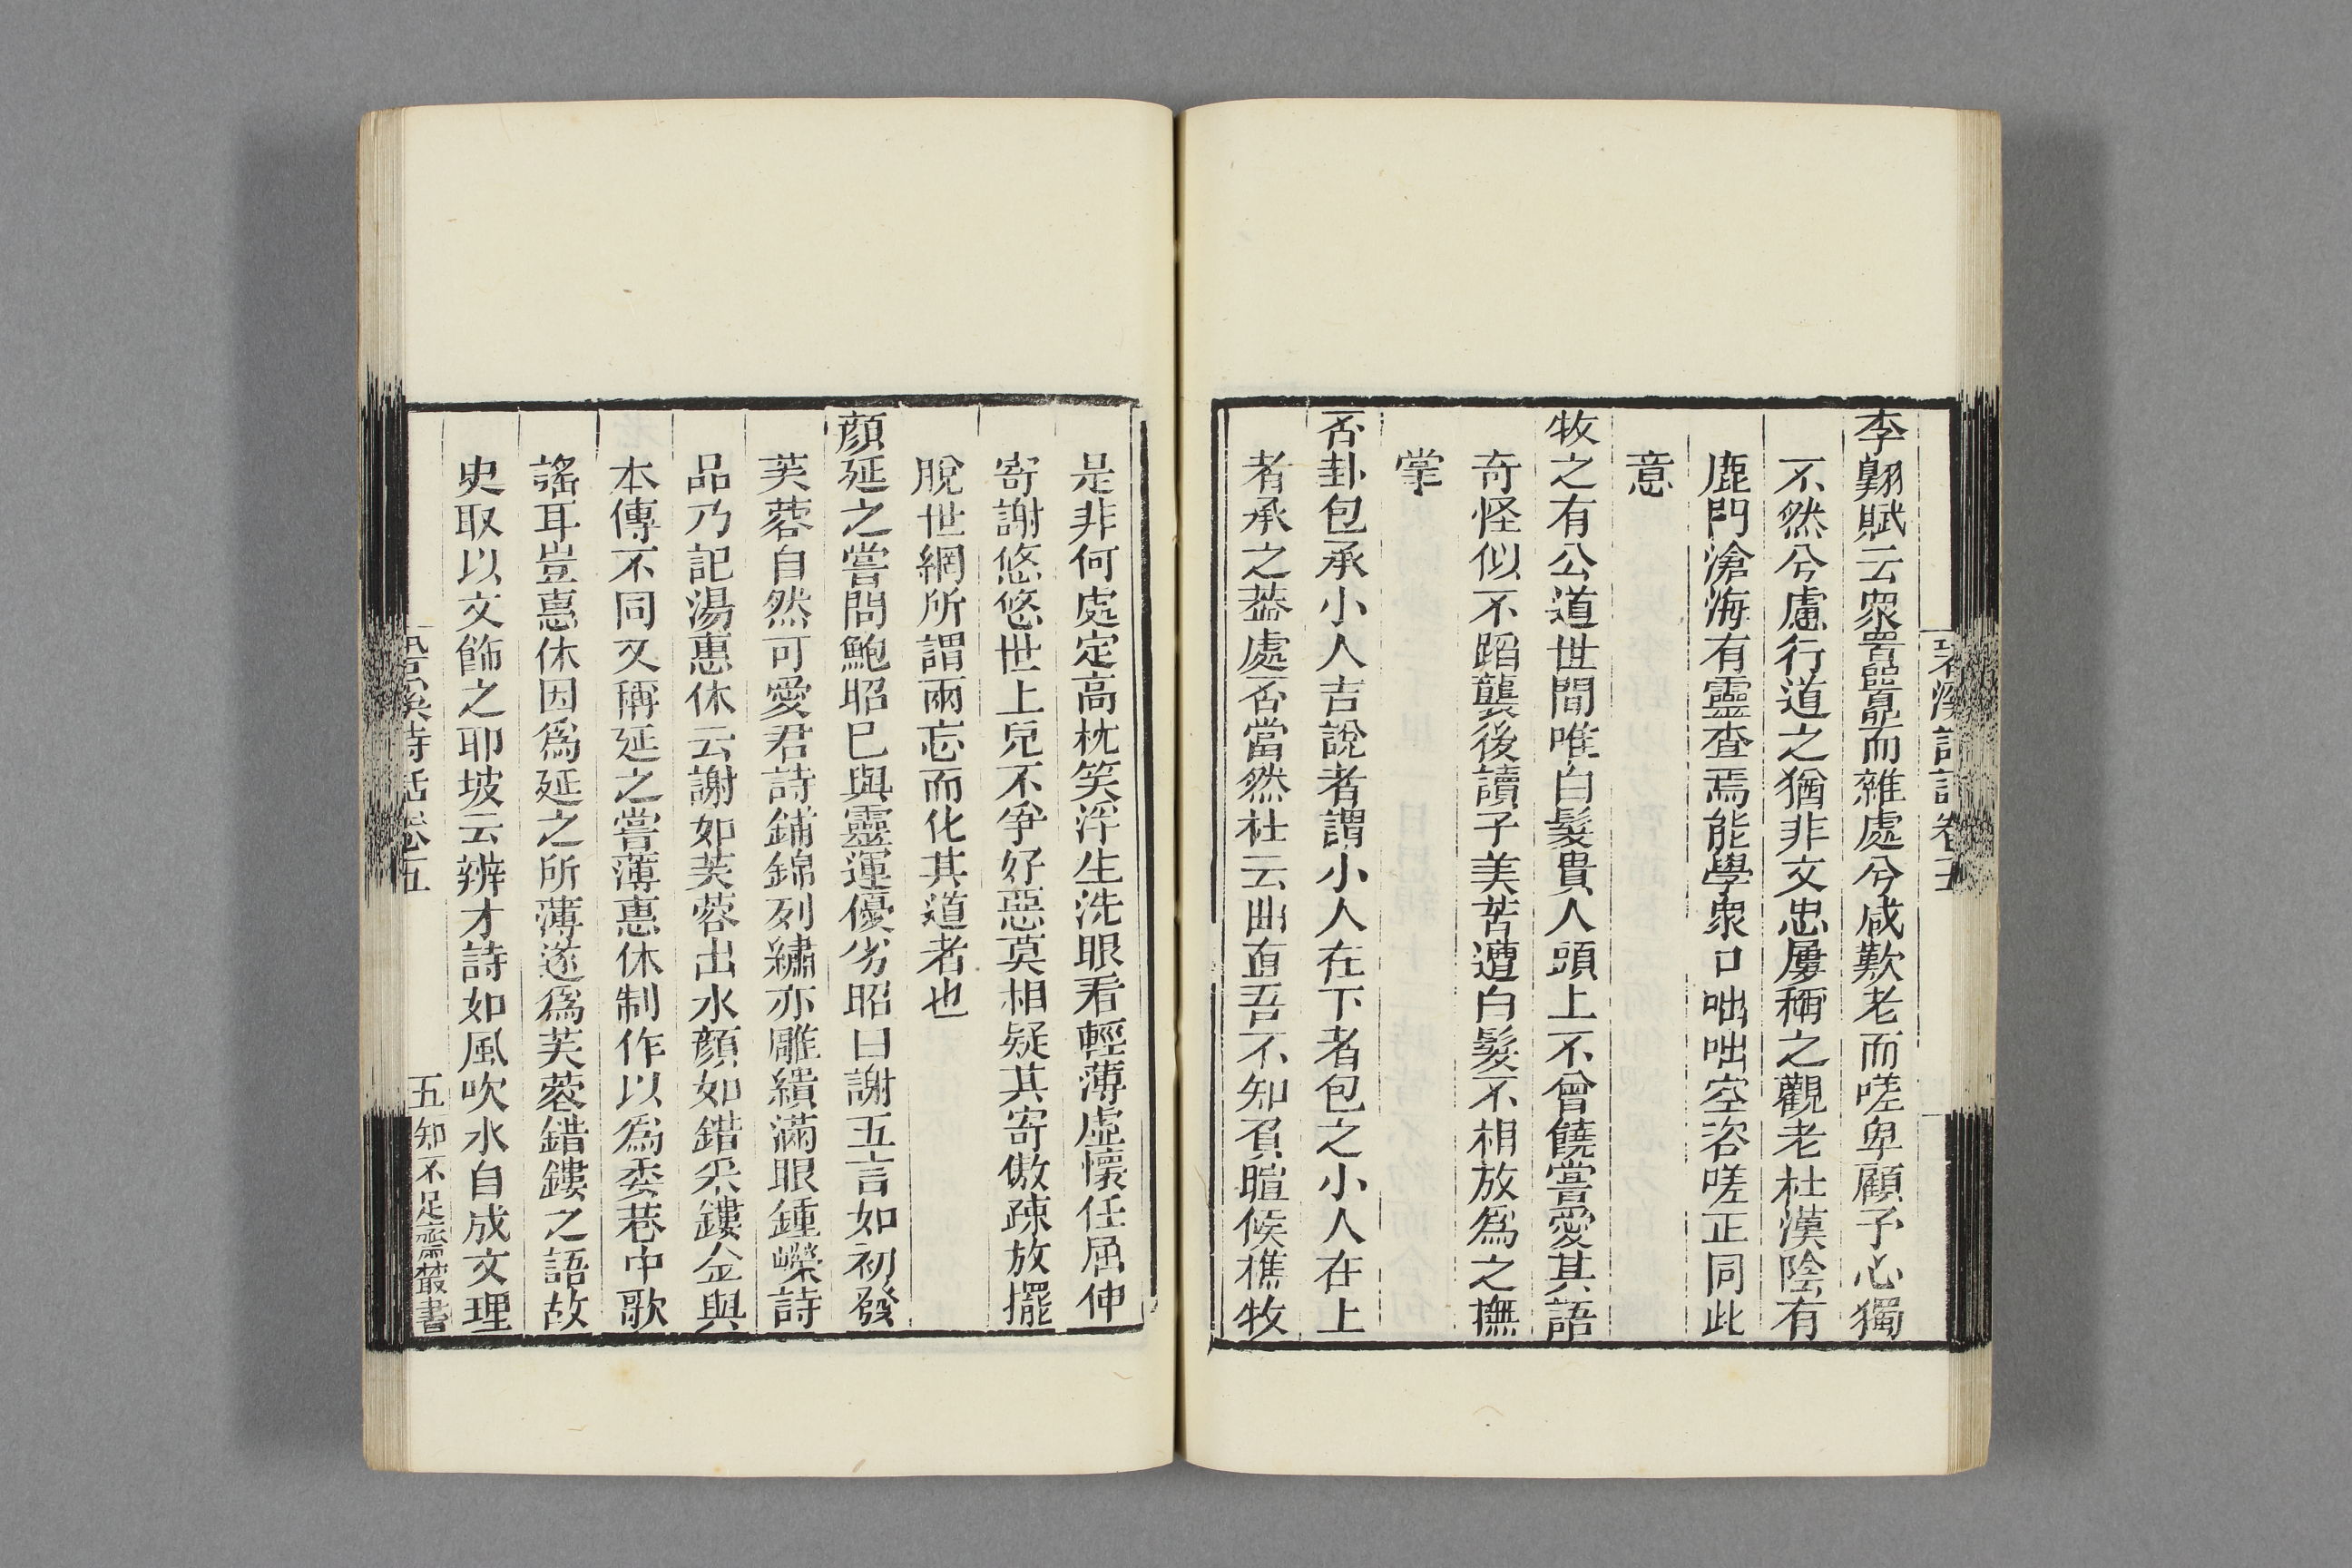 䂬溪詩話卷五
李翺賦云衆嚣嚣而雜處兮咸歎老而嗟卑顧予心獨
不然兮慮行道之猶非文忠屢稱之觀老杜漢陰有
鹿門滄海有靈查焉能學衆口咄咄空咨嗟正同此
意
牧之有公道世間唯白髮貴人頭上不曾饒嘗愛其語
奇怪似不蹈襲後讀子美苦遭白髮不相放爲之撫
掌
否卦包承小人吉說者謂小人在下者包之小人在上
者承之葢處否當然杜云曲直吾不知負暄候樵牧
是非何處定高枕笑浮生洗眼看輕薄虛懷任屈伸
寄謝悠悠世上兒不爭好惡莫相疑其寄傲疎放擺
脫世網所謂兩忘而化其道者也
顏延之嘗問鮑昭已與靈運優劣昭曰謝五言如初發
芙蓉自然可愛君詩鋪錦列繡亦雕繢滿眼鍾嶸詩
品乃記湯惠休云謝如芙蓉出水顏如錯采鏤金與
本傳不同又稱延之嘗薄惠休制作以爲委巷中歌
謠耳豈惠休因爲延之所薄遂爲芙蓉錯鏤之語故
史取以文飾之耶坡云辨才詩如風吹水自成文理
䂬溪詩話卷五
五
知不足齋叢書